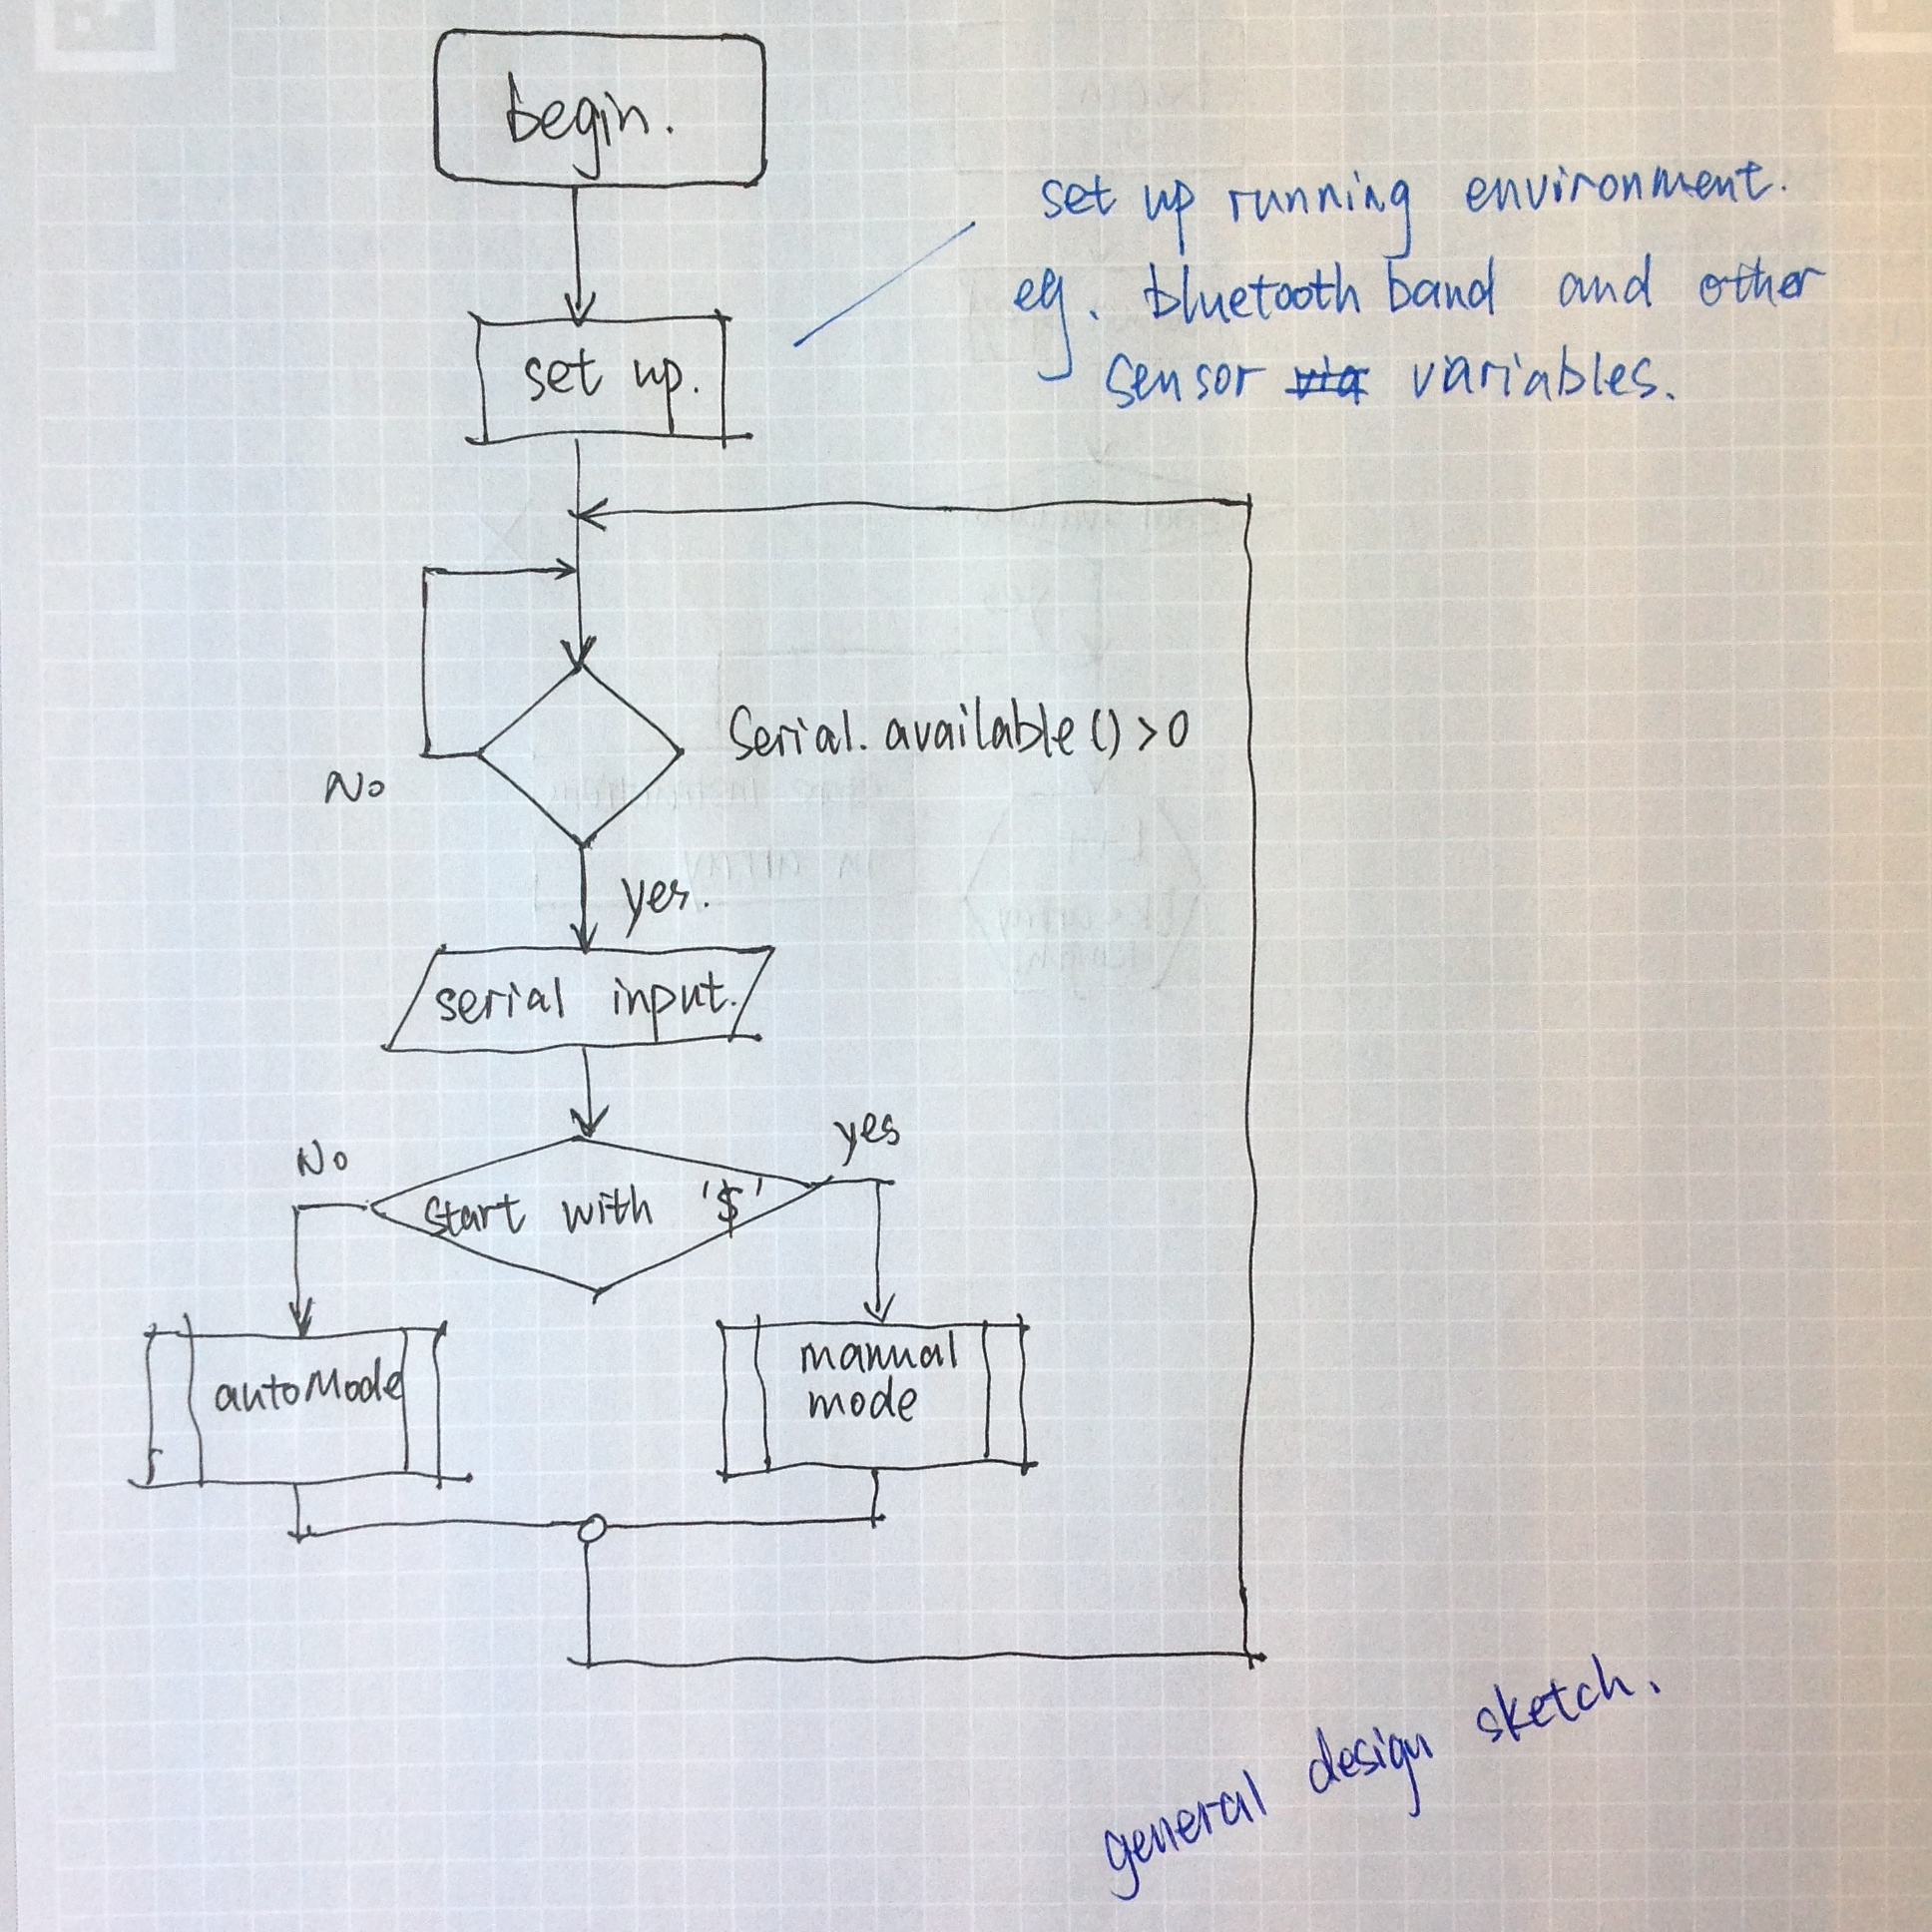 begin.
set up running environment.
eg. bluetooth band and other
sensor variables.
set up.
Serial.available()>0
No
yes.
serial input.
No
yes
Start with '$'
autoMode
manual
mode
general design sketch.